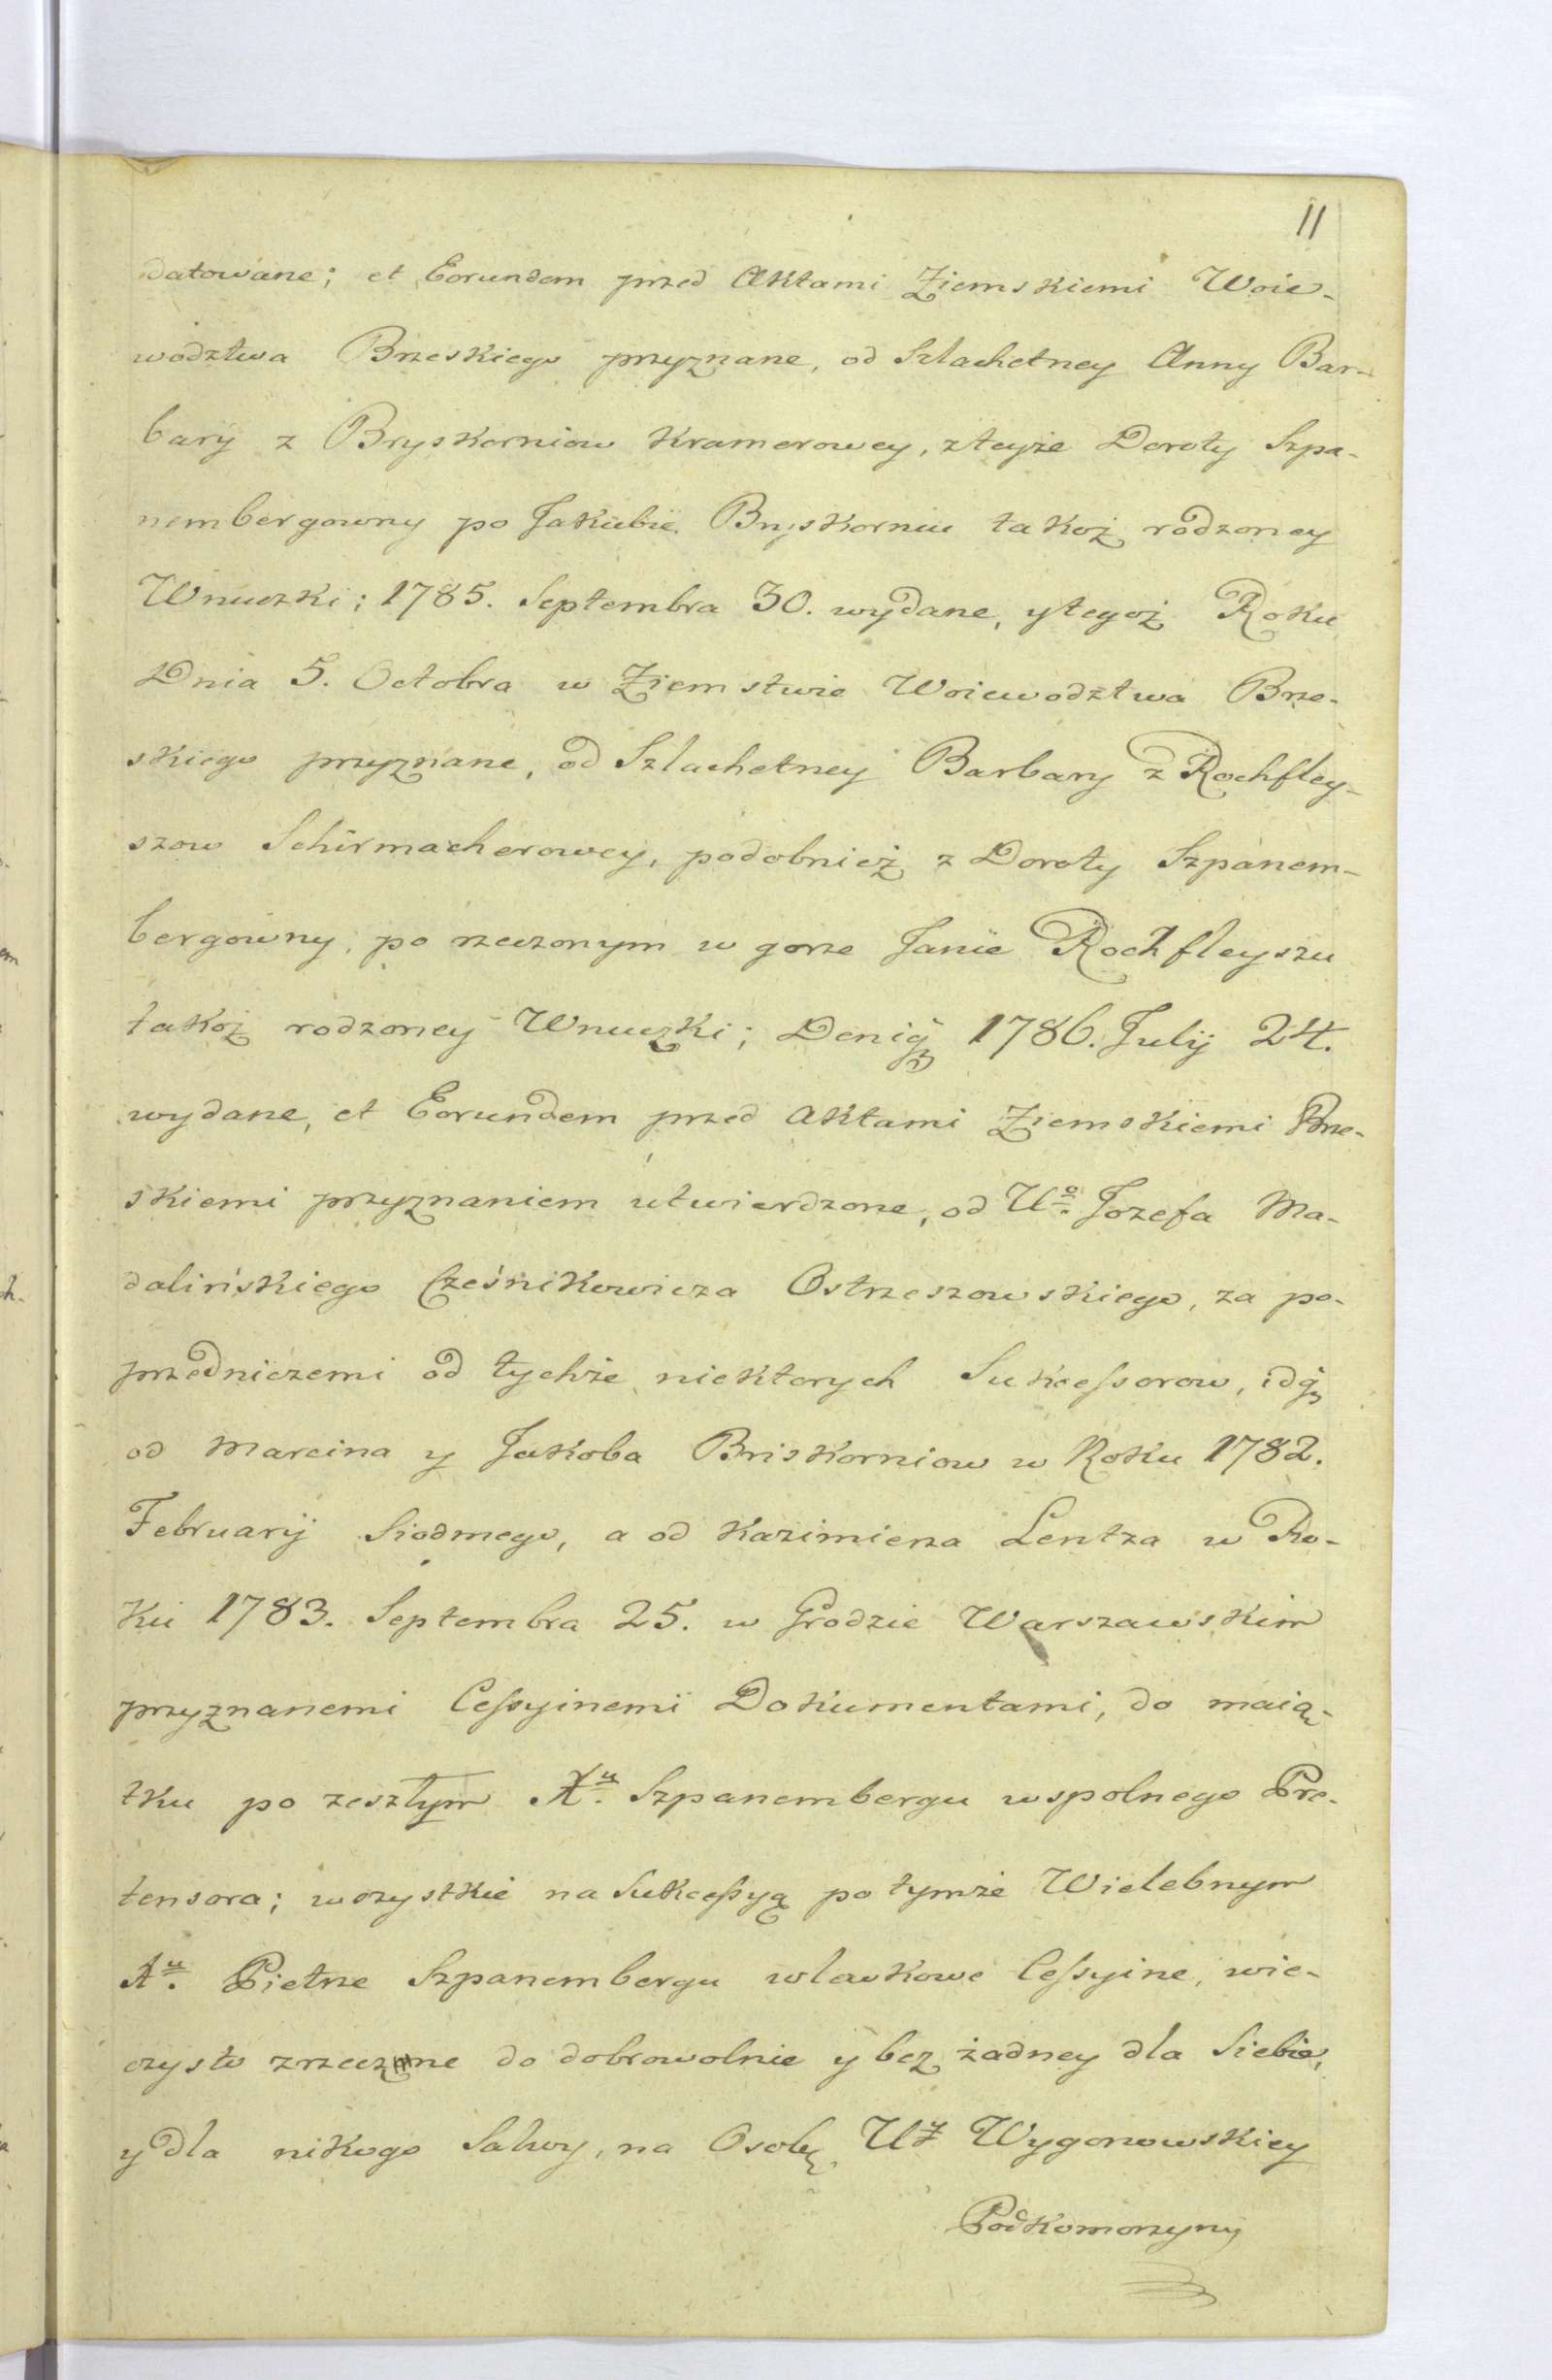 11
datowane; et Eorundem przed Aktami Ziemskiemi Woie-
wodztwa Brzeskiego przyznane, od Szlachetney Anny Bar-
bary z Bryskorniow Kramerowey, z teyże Doroty Szpa-
nembergowny po Jakubie Bryskorniu takoż rodzoney
Wnuczki; 1785. Septembra 30. wydane, y tegoż Roku
Dnia 5. Octobra w Ziemstwie Woiewodztwa Brze-
skiego przyznane, od Szlachetney Barbary z Rochfley-
szow Schirmacherowey, podobnież z Doroty Szpanem-
bergowny, po rzeczonym w gorze Janie Rochfleyszu
takoż rodzoney Wnuczki; 1786. July 24.
wydane, et Eorundem przed Aktami Ziemskiemi Brze-
skiemi przyznaniem utwierdzone, od Uo. Jozefa Ma-
dalińskiego Cześnikowicza Ostrzeszowskiego, za po-
przedniczemi od tychże niektorych Sukcessorow,
od Marcina y Jakoba Briskorniow w Roku 1782.
Februarij Siodmego, a od Kazimierza Lentza w Ro-
ku 1783. Septembra 25. w Grodzie Warszawskim
przyznanemi Cessyinemi Dokumentami, do maią-
tku po zeszłym Xu. Szpanembergu wspolnego Pre-
tensora; wszystkie na Sukcessyą po tymże Wielebnym
Xu. Pietrze Szpanembergu wlewkowe Cessyine, wie-
czysto zrzeczone do dobrowolnie y bez żadney dla Siebie,
y dla nikogo Salwy, na Osobę UZ Wygonowskiey
Podkomorzyny